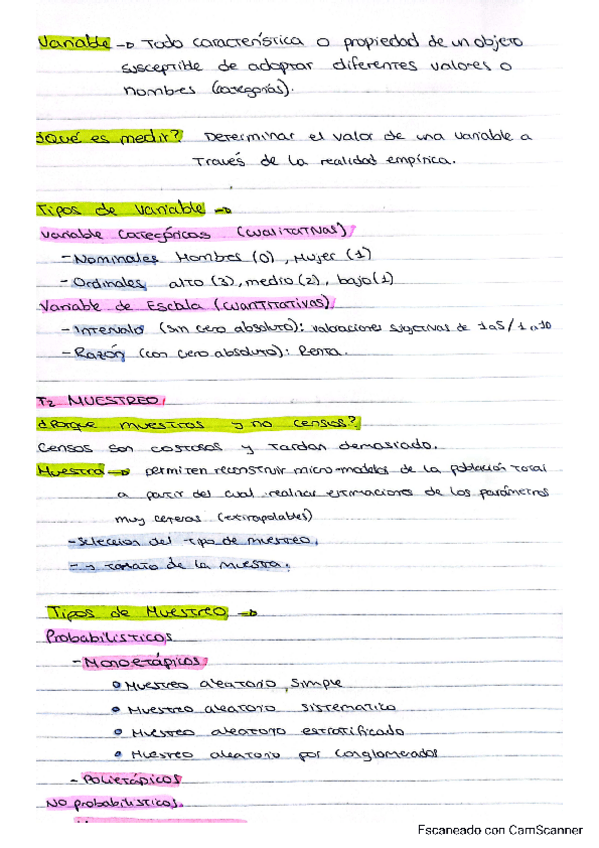 Variable → Todo característica o propiedad de un objeto
susceptible de adoptar diferentes valores o
nombres (categorías).
¿Qué es medir? Determinar el valor de una variable a
través de la realidad empírica.
Tipos de variable →
Variable Categóricas (cualitativas)
- Nominales Hombres (0), Mujer (1)
- Ordinales alto (3), medio (2), bajo (1)
Variable de Escala (cuantitativas)
- Intervalo (sin cero absoluto): valoraciones subjetivas de 1 a 5 / 1 a 10
- Razón (con cero absoluto): Renta.
T2 MUESTREO
¿Porque muestras y no censos?
Censos son costosos y tardan demasiado.
Muestra → permiten reconstruir micro-modelos de la población total
a partir del cual realizar estimaciones de los parámetros
muy certeras (extrapolables)
- Selección del tipo de muestreo.
- → tamaño de la muestra.
Tipos de Muestreo →
Probabilísticos
- Monoetápicos
Muestreo aleatorio simple
Muestreo aleatorio sistematico
Muestreo aleatorio estratificado
Muestreo aleatorio por conglomerados
- Polietápicos
No probabilisticos.
Escaneado con CamScanner